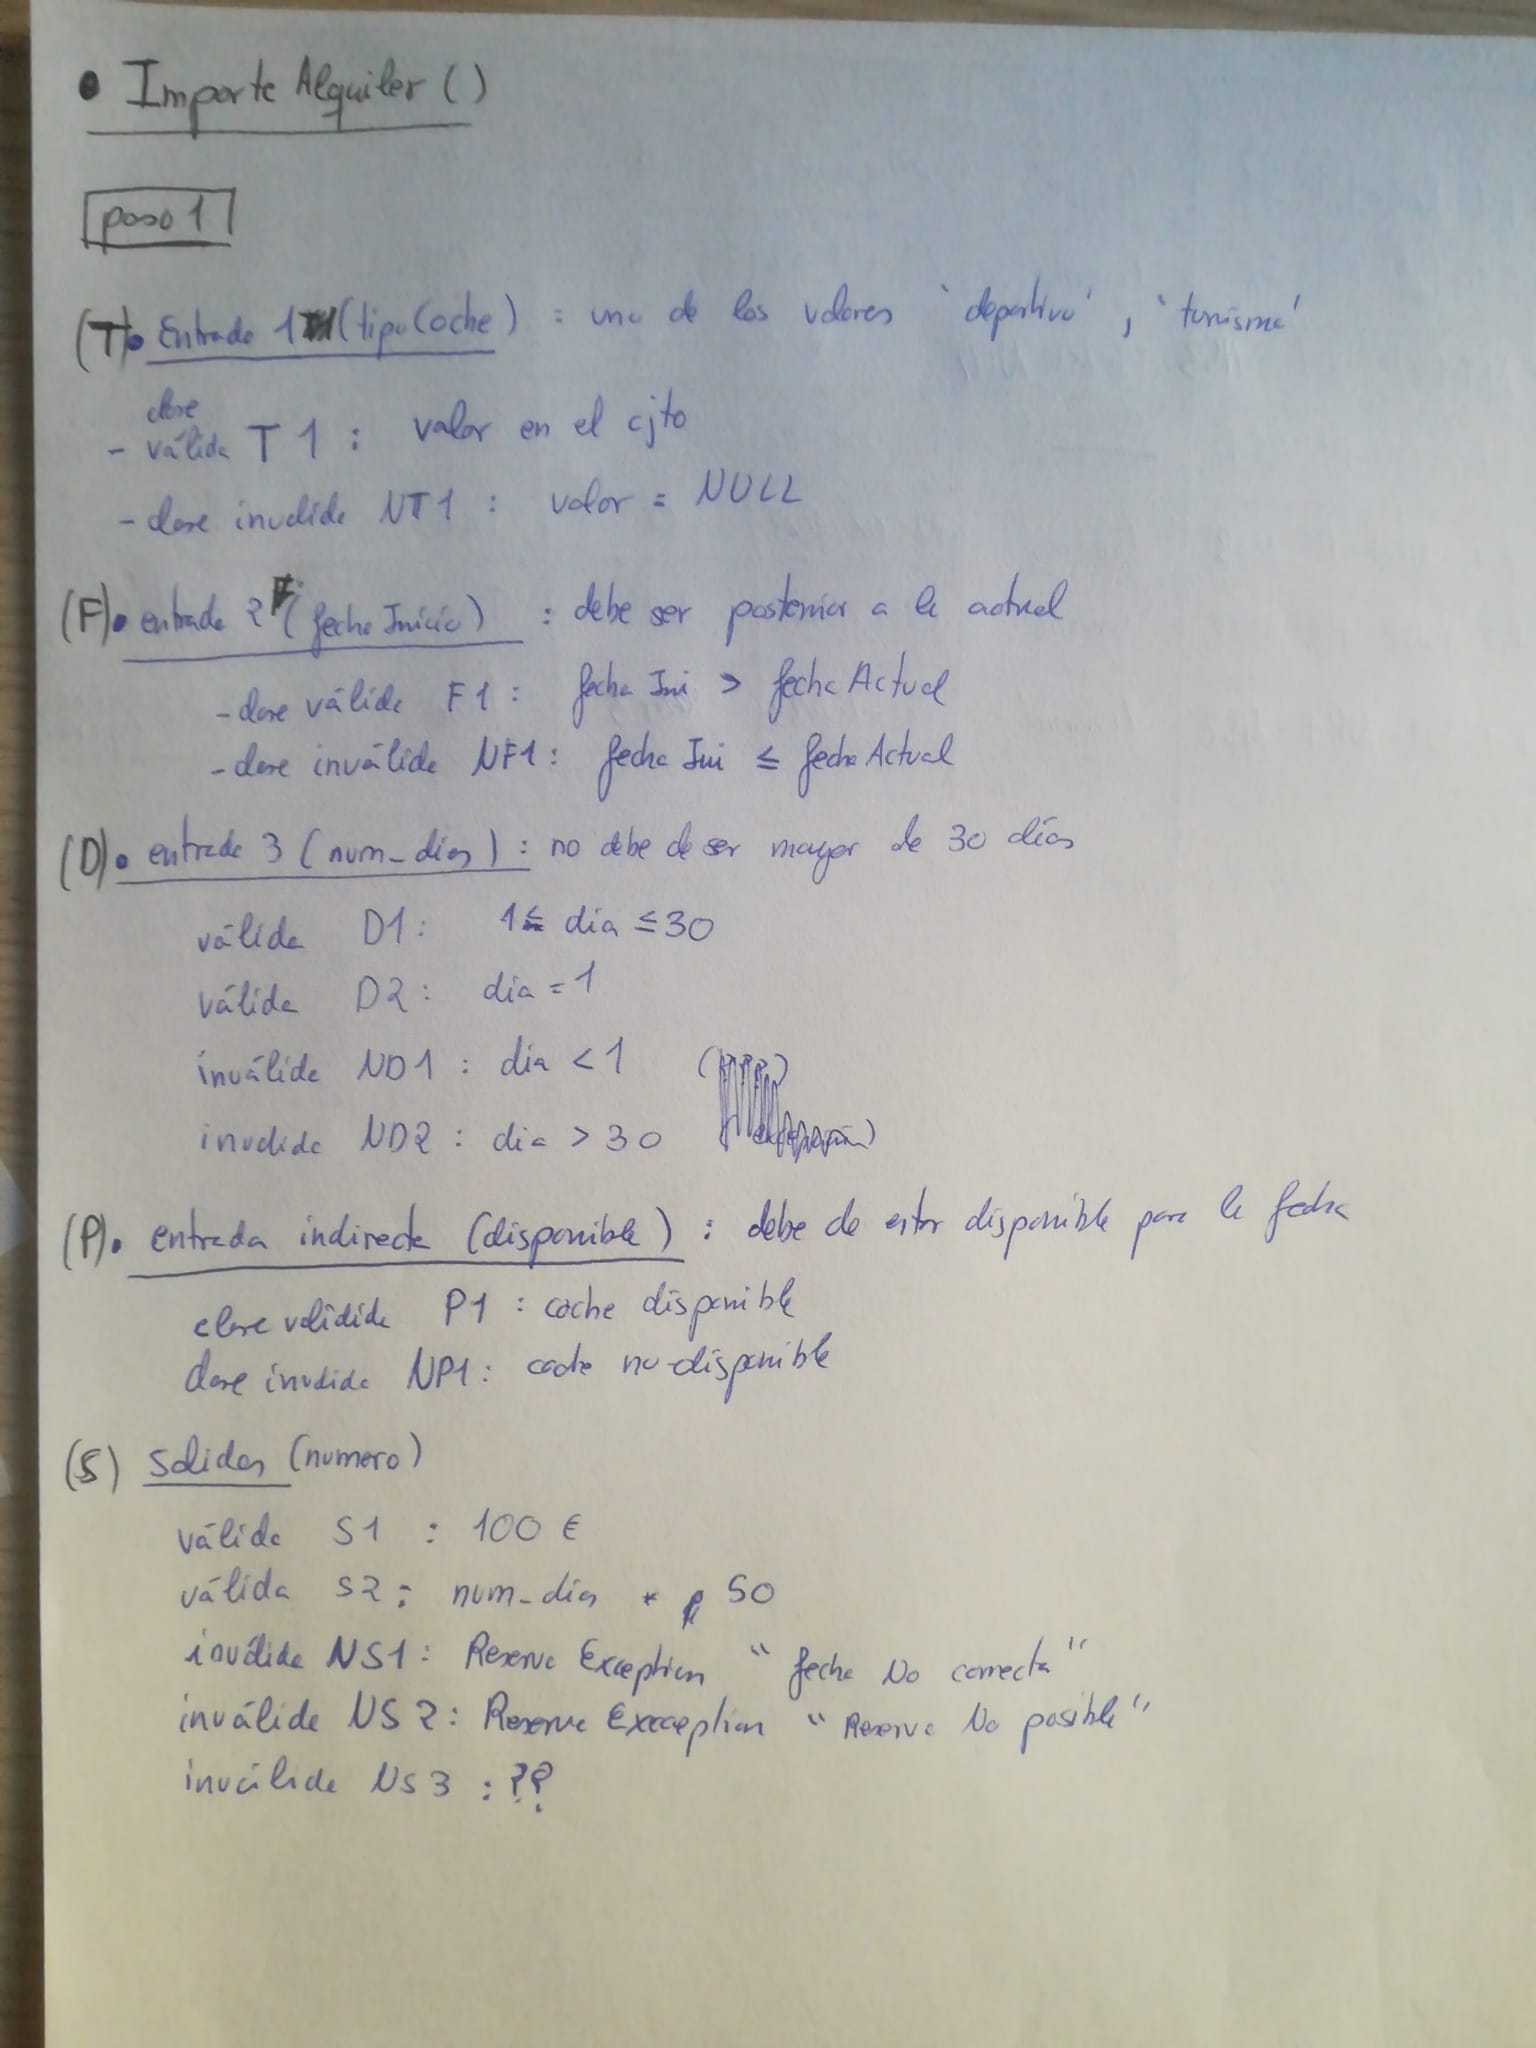 • Importe Alquiler ( )
paso 1
(T)• Entrada 1 (tipoCoche) : uno de los valores 'deportivo', 'turismo'
- clase válida T1 : valor en el cjto
- clase invalida NT1 : valor = NULL
(F)• entrada 2 (fecha Inicio) : debe ser posterior a la actual
- clase válida F1 : fecha Ini > fecha Actual
- clase inválida NF1 : fecha Ini ≤ fecha Actual
(D)• entrada 3 (num_dias) : no debe de ser mayor de 30 días
válida D1 : 1 ≤ dia ≤ 30
válida D2 : dia = 1
inválida ND1 : dia < 1
invalida ND2 : dia > 30
(P)• entrada indirecta (disponible) : debe de estar disponible para la fecha
clase validida P1 : coche disponible
clase invalida NP1 : coche no-disponible
(S) Salidas (numero)
válida S1 : 100 €
válida S2 : num_dias * 50
inválida NS1 : Reserva Exception "fecha No correcta"
inválida NS2 : Reserva Excception "Reserva No posible"
inválida NS3 : ??